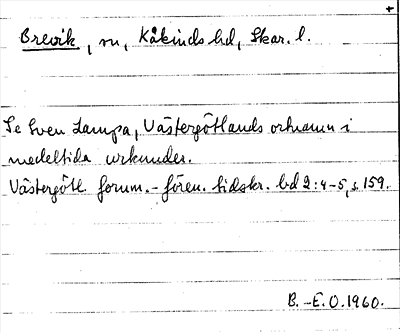 +
Brevik, sn, Kåkinds hd, Skar. l.
Se Sven Lampa, Västergötlands ortnamn i
medeltida urkunder.
Västergötl. fornm.-fören. tidskr. bd 2:4-5, s. 159.
B.-E.O. 1960.